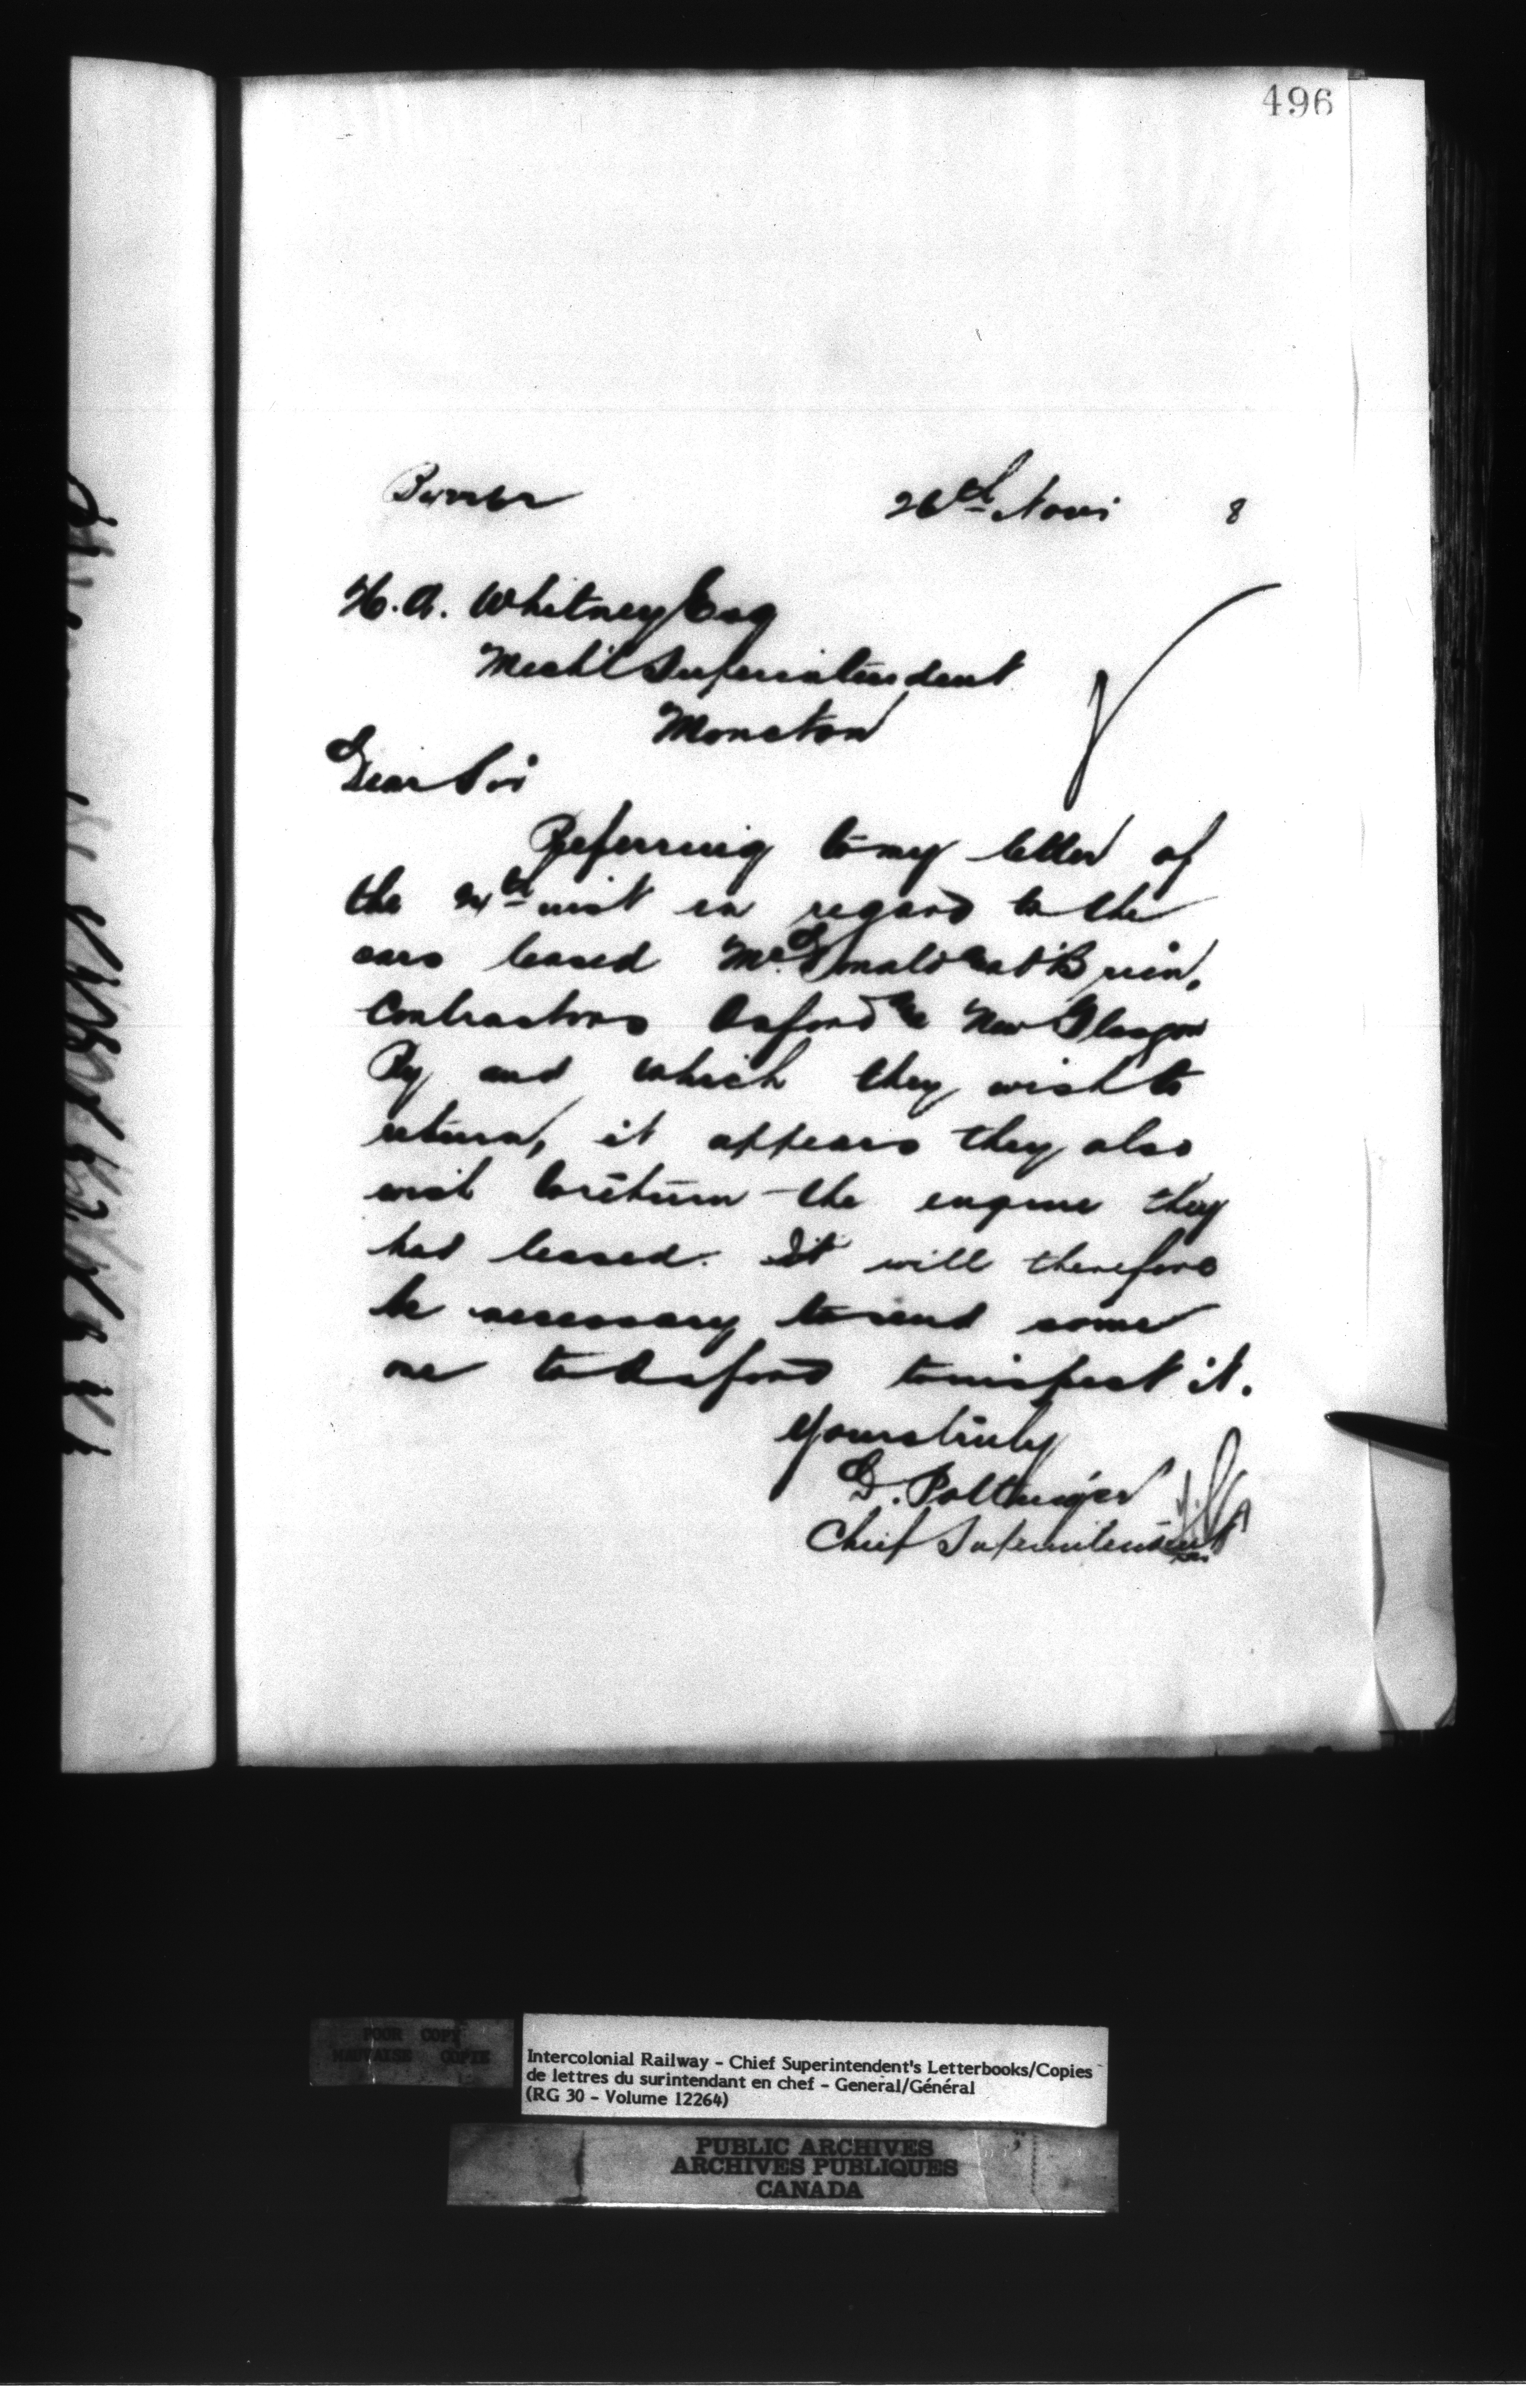 496
26th Nov 8
H. A. Whitney Esq
Mech'l Superintendent
Moncton
Dear Sir
Referring to my letter of
the 24th inst in regard to the
cars leased McDonald & O'Brien,
Contractors Oxford & New Glasgow
Ry and which they wish to
return, it appears they also
wish to return the engine they
had leased. It will therefore
be necessary to send some
one to Oxford to inspect it.
Yours truly
D. Pottinger
Chief Superintendent
POOR COPY
MAUVAISE COPIE
Intercolonial Railway - Chief Superintendent's Letterbooks/Copies
de lettres du surintendant en chef - General/Général
(RG 30 - Volume 12264)
PUBLIC ARCHIVES
ARCHIVES PUBLIQUES
CANADA